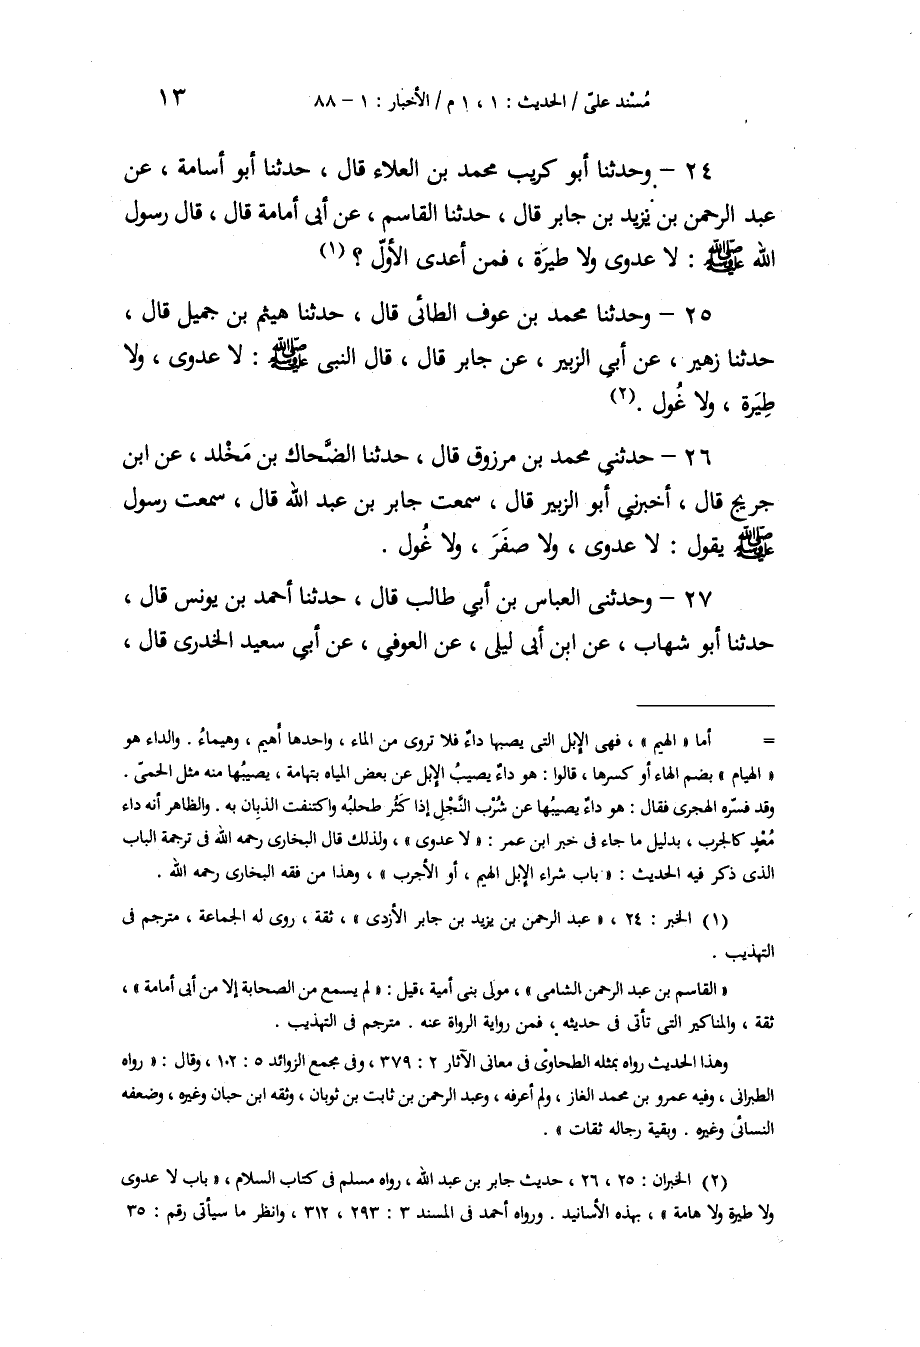 مُسْند علىّ / الحديث : ١ ، ١ م / الأخبار : ١ – ٨٨
١٣
٢٤ – وحدثنا أبو كريب محمد بن العلاء قال ، حدثنا أبو أسامة ، عن
عبد الرحمن بن يزيد بن جابر قال ، حدثنا القاسم ، عن أبى أمامة قال ، قال رسول
الله ﷺ : لا عدوى ولا طيرَة ، فمن أعدى الأوّل ؟ (١)
٢٥ – وحدثنا محمد بن عوف الطائى قال ، حدثنا هيثم بن جميل قال ،
حدثنا زهير ، عن أبي الزبير ، عن جابر قال ، قال النبى ﷺ : لا عدوى ، ولا
طِيَرة ، ولا غُول .(٢)
٢٦ – حدثني محمد بن مرزوق قال ، حدثنا الضَّحاك بن مَخْلد ، عن ابن
جريج قال ، أخبرني أبو الزبير قال ، سمعت جابر بن عبد الله قال ، سمعت رسول
ﷺ يقول : لا عدوى ، ولا صفَرَ ، ولا غُول .
٢٧ – وحدثنى العباس بن أبي طالب قال ، حدثنا أحمد بن يونس قال ،
حدثنا أبو شهاب ، عن ابن أبى ليلى ، عن العوفي ، عن أبي سعيد الخدرى قال ،
= أما « الهيم » ، فهى الإبل التى يصبها داءٌ فلا تروى من الماء ، واحدها أهيم ، وهيماءُ . والداء هو
« الهيام » بضم الهاء أو كسرها ، قالوا : هو داءٌ يصيبُ الإبل عن بعض المياه بتهامة ، يصيبُها منه مثل الحمىّ .
وقد فسّره الهجرى فقال : هو داءٌ يصيبُها عن شُرْب النَّجْلِ إذا كَثُر طحلبُه واكتنفت الذبان به . والظاهر أنه داء
مُعْدٍ كالجرب ، بدليل ما جاء فى خبر ابن عمر : « لا عدوى » ، ولذلك قال البخارى رحمه الله فى ترجمة الباب
الذى ذكر فيه الحديث : « باب شراء الإبل الهيم ، أو الأجرب » ، وهذا من فقه البخارى رحمه الله .
(١) الخبر : ٢٤ ، « عبد الرحمن بن يزيد بن جابر الأزدى » ، ثقة ، روى له الجماعة ، مترجم فى
التهذيب .
« القاسم بن عبد الرحمن الشامى » ، مولى بنى أمية ، قيل : « لم يسمع من الصحابة إلا من أبى أمامة » ،
ثقة ، والمناكير التى تأتى فى حديثه ، فمن رواية الرواة عنه . مترجم فى التهذيب .
وهذا الحديث رواه بمثله الطحاوىّ فى معانى الآثار ٢ : ٣٧٩ ، وفى مجمع الزوائد ٥ : ١٠٢ ، وقال : « رواه
الطبرانى ، وفيه عمرو بن محمد الغاز ، ولم أعرفه ، وعبد الرحمن بن ثابت بن ثوبان ، وثقه ابن حبان وغيره ، وضعفه
النسائى وغيره . وبقية رجاله ثقات » .
(٢) الخبران : ٢٥ ، ٢٦ ، حديث جابر بن عبد الله ، رواه مسلم فى كتاب السلام ، « باب لا عدوى
ولا طيرة ولا هامة » ، بهذه الأسانيد . ورواه أحمد فى المسند ٣ : ٢٩٣ ، ٣١٢ ، وانظر ما سيأتى رقم : ٣٥